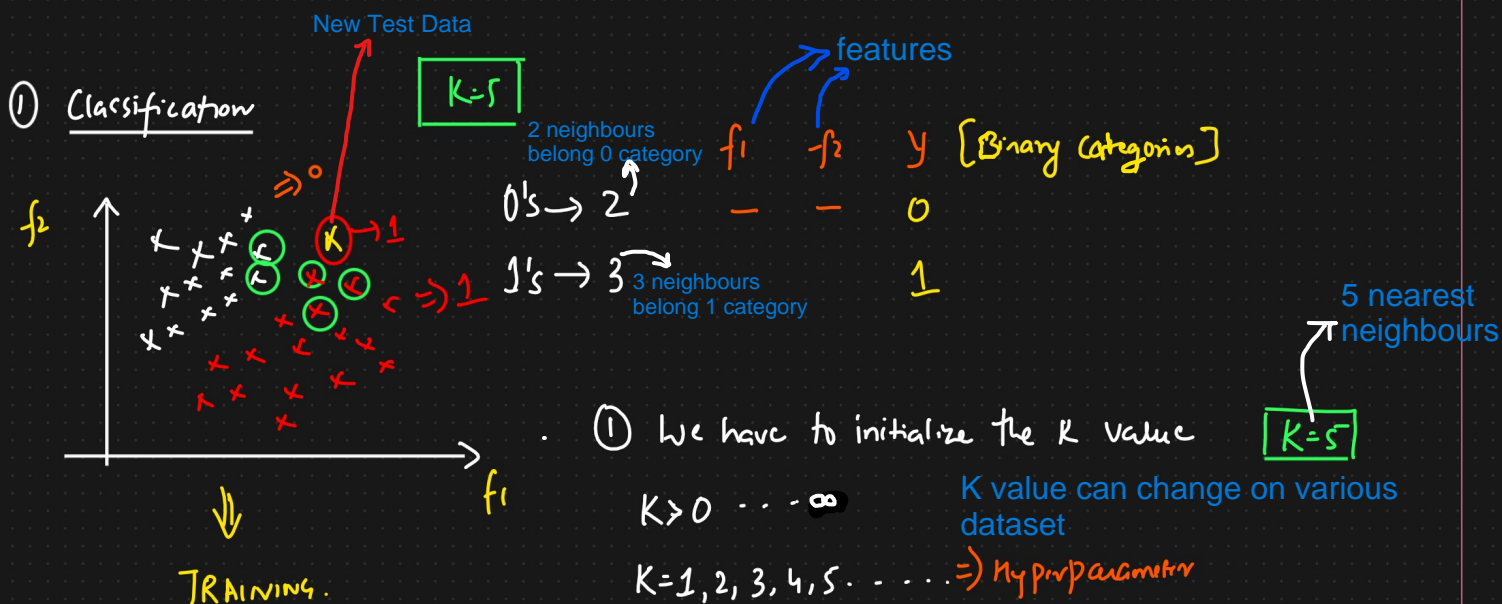 New Test Data
features
① Classification
K=5
2 neighbours
belong 0 category
f1 f2 y [Binary Categories]
⇒ 0
0's → 2
— — 0
f2
K → 1
1's → 3
3 neighbours
belong 1 category
1
⇒ 1
5 nearest
neighbours
① We have to initialize the K value
K=5
f1
K value can change on various
dataset
K>0 ... ∞
K=1, 2, 3, 4, 5...... ⇒ Hyperparameter
TRAINING.